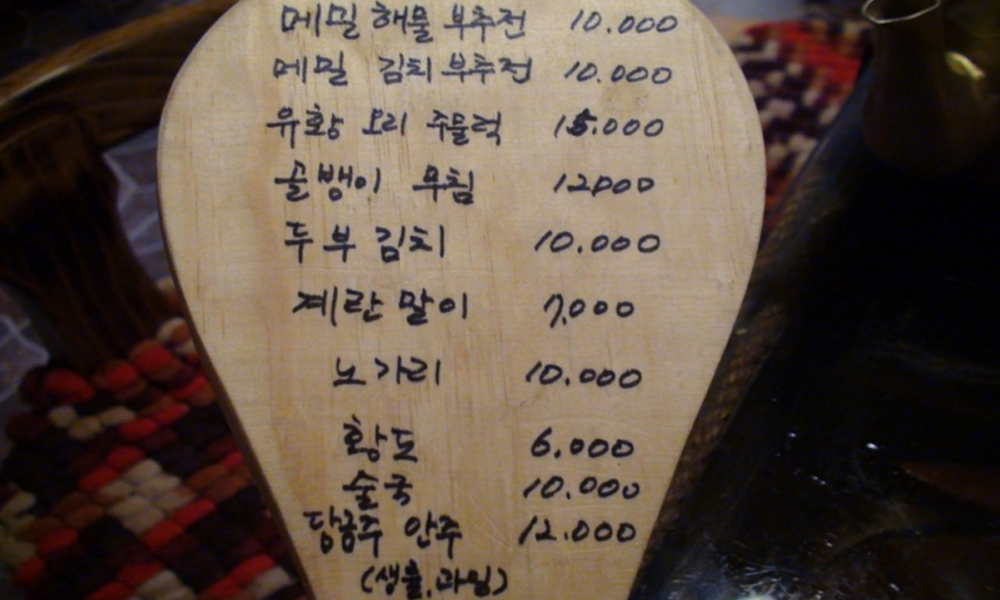 메밀 해물 부추전 10.000
메밀 김치 부추전 10.000
유황 오리 주물럭 15.000
골뱅이 무침 12000
두부 김치 10.000
계란 말이 7,000
노가리 10.000
황도 6.000
술국 10.000
당금주 안주 12.000
(생률,과일)